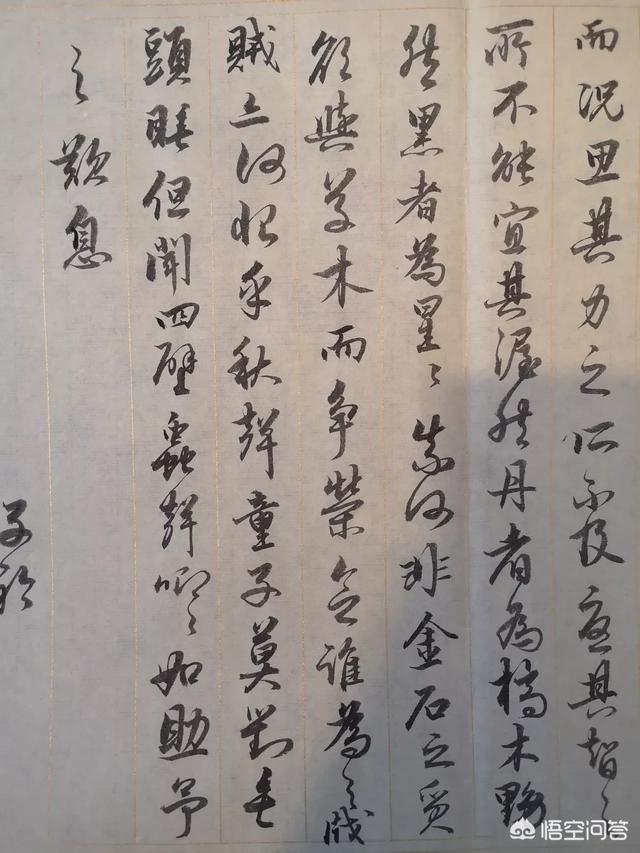 而況思其力之所不及憂其智之
所不能宜其渥然丹者為槁木黟
然黑者為星〻奈何非金石之質
欲與草木而争榮念誰為之戕
賊亦何恨乎秋聲童子莫對垂
頭睡但聞四壁蟲聲唧〻如助予
之歎息
悟空问答